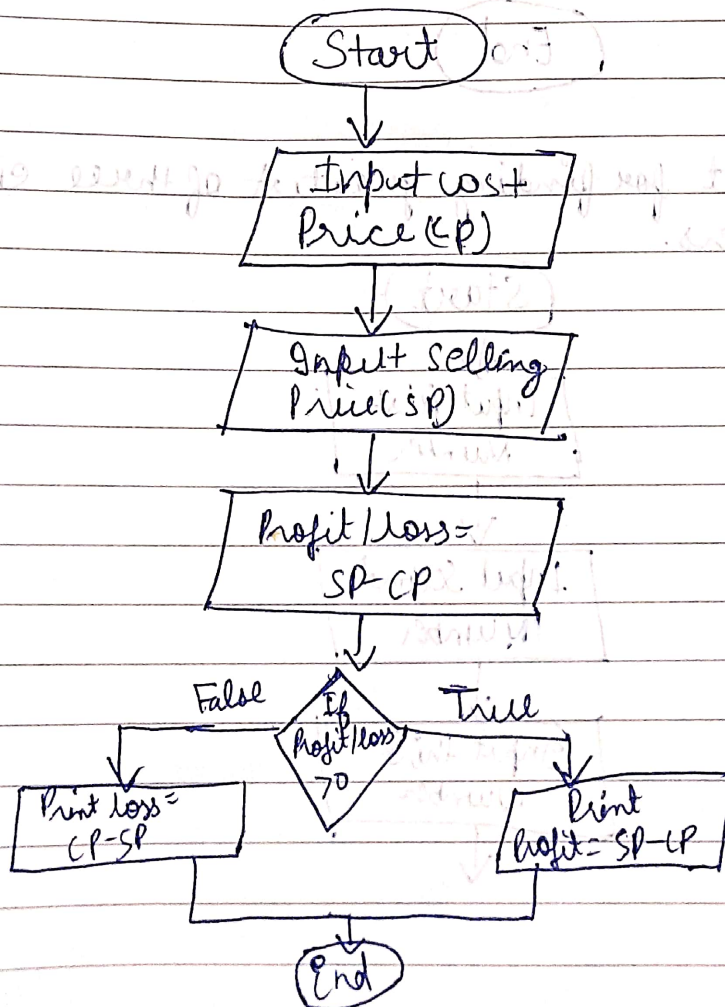 Start
Input cost
Price (CP)
Input selling
Price (SP)
Profit/loss=
SP-CP
False
If
Profit/loss
>0
True
Print loss=
CP-SP
Print
Profit= SP-CP
End